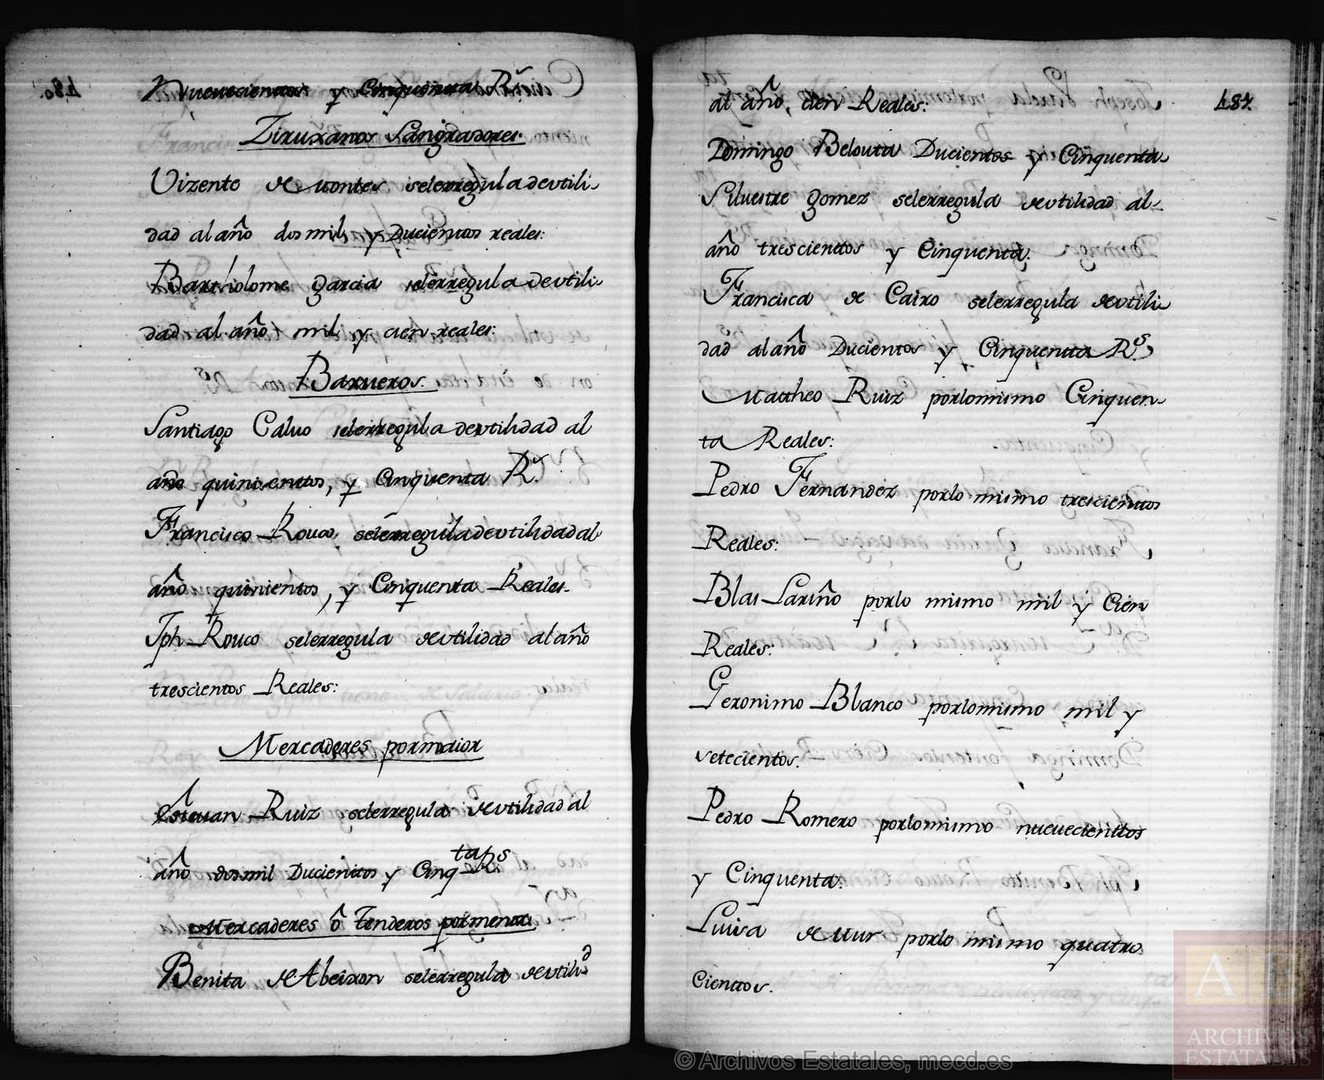 Nuevecientos y Cinquenta Rs.
Ziruxanos Sangradores
Vizente de montes selerregula deutili-
dad al año dos mil y Ducientos reales:
Bartholome garcia selerregula deutili-
dad al año mil y cien reales:
Barueros.
Santiago Caluo selerregula deutilidad al
año quinientos, y Cinquenta Rs.
Francisco Rouco, selerregula deutilidad al
año quinientos, y Cinquenta Reales.
Jph Rouco selerregula deutilidad al año
trescientos Reales:
Mercaderes pormaior
Esteuan Ruiz selerregula deutilidad al
año dosmil Ducientos y Cinqta Rs
Mercaderes ô Tenderos pormenor
Benita de Abeixon selerregula deutilid
480.
al año, cien Reales:
Domingo Belouta Ducientos y Cinquenta
Siluestre gomez selerregula deutilidad al
año trescientos y Cinquenta.
Francisca de Cairo selerregula deutili
dad al año Ducientos y Cinquenta Rs
Mattheo Ruiz porlomismo Cinquen-
ta Reales:
Pedro Fernandez porlo mismo trescientos
Reales:
Blas Lariño porlo mismo mil y Cien
Reales:
Geronimo Blanco porlomismo mil y
setecientos.
Pedro Romero porlomismo nuevecientos
y Cinquenta.
Luisa de Mur porlo mismo quatro
cientos.
481.
© Archivos Estatales, mecd.es
AE
ARCHIVOS
ESTATALES